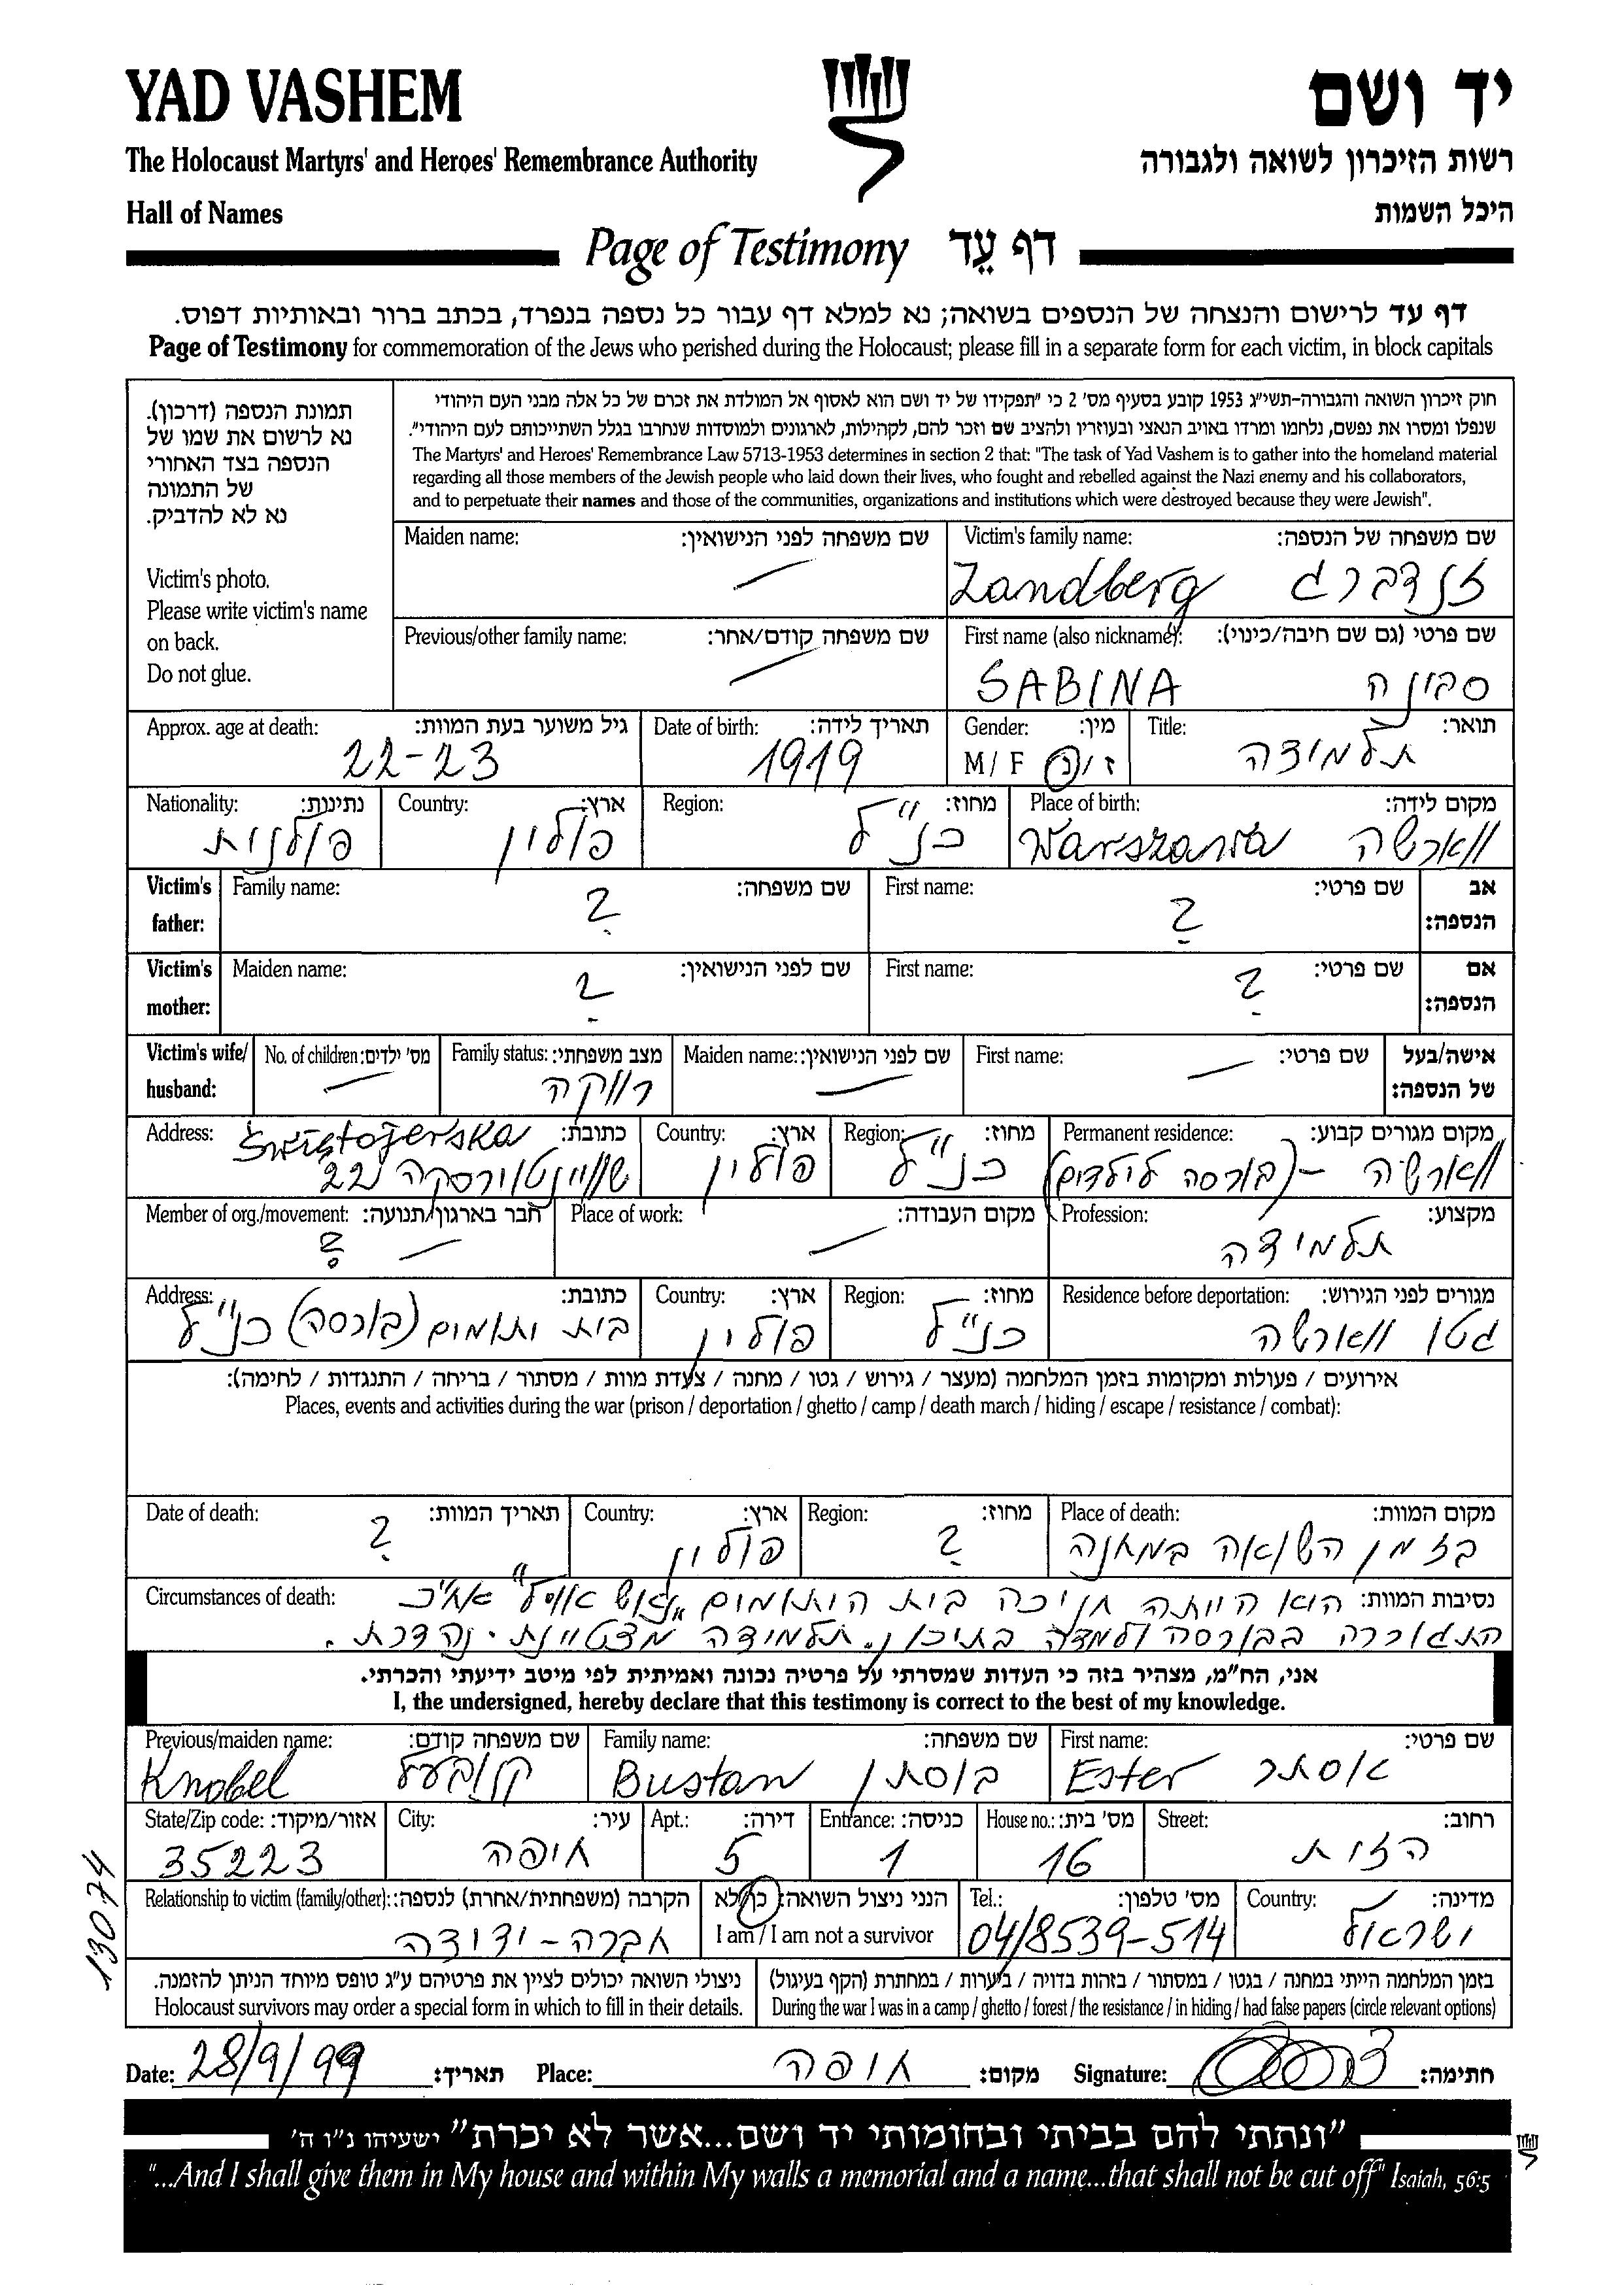 YAD VASHEM
יד ושם
The Holocaust Martyrs' and Heroes' Remembrance Authority
רשות הזיכרון לשואה ולגבורה
Hall of Names
היכל השמות
Page of Testimony דף עֵד
דף עד לרישום והנצחה של הנספים בשואה; נא למלא דף עבור כל נספה בנפרד, בכתב ברור ובאותיות דפוס.
Page of Testimony for commemoration of the Jews who perished during the Holocaust; please fill in a separate form for each victim, in block capitals
תמונת הנספה (דרכון).
נא לרשום את שמו של
הנספה בצד האחורי
של התמונה
נא לא להדביק.
Victim's photo.
Please write victim's name
on back.
Do not glue.
חוק זיכרון השואה והגבורה-תשי"ג 1953 קובע בסעיף מס' 2 כי "תפקידו של יד ושם הוא לאסוף אל המולדת את זכרם של כל אלה מבני העם היהודי
שנפלו ומסרו את נפשם, נלחמו ומרדו באויב הנאצי ובעוזריו ולהציב שם וזכר להם, לקהילות, לארגונים ולמוסדות שנחרבו בגלל השתייכותם לעם היהודי".
The Martyrs' and Heroes' Remembrance Law 5713-1953 determines in section 2 that: "The task of Yad Vashem is to gather into the homeland material
regarding all those members of the Jewish people who laid down their lives, who fought and rebelled against the Nazi enemy and his collaborators,
and to perpetuate their names and those of the communities, organizations and institutions which were destroyed because they were Jewish".
Maiden name: שם משפחה לפני הנישואין: Victim's family name: שם משפחה של הנספה:
Zandberg זנדברג
Previous/other family name: שם משפחה קודם/אחר: First name (also nickname): שם פרטי (גם שם חיבה/כינוי):
SABINA סבינה
Approx. age at death: גיל משוער בעת המוות: Date of birth: תאריך לידה: Gender: מין: Title: תואר:
22-23 1919 M/ F ז/נ תלמידה
Nationality: נתינות: Country: ארץ: Region: מחוז: Place of birth: מקום לידה:
פולנית פולין כנ"ל Warszawa ווארשה
Victim's father: Family name: שם משפחה: First name: שם פרטי: אב הנספה:
? ?
Victim's mother: Maiden name: שם לפני הנישואין: First name: שם פרטי: אם הנספה:
? ?
Victim's wife/ husband: No. of children: מס' ילדים: Family status: מצב משפחתי: Maiden name: שם לפני הנישואין: First name: שם פרטי: אישה/בעל של הנספה:
רווקה
Address: כתובת: Country: ארץ: Region: מחוז: Permanent residence: מקום מגורים קבוע:
Świętojerska
שוויינטוירסקה 22 פולין כנ"ל ווארשה - (בורסה לילדים)
Member of org./movement: חבר בארגון/תנועה: Place of work: מקום העבודה: Profession: מקצוע:
? תלמידה
Address: כתובת: Country: ארץ: Region: מחוז: Residence before deportation: מגורים לפני הגירוש:
בית יתומים (בורסה) כנ"ל פולין כנ"ל גטו ווארשה
אירועים / פעולות ומקומות בזמן המלחמה (מעצר / גירוש / גטו / מחנה / צעדת מוות / מסתור / בריחה / התנגדות / לחימה):
Places, events and activities during the war (prison / deportation / ghetto / camp / death march / hiding / escape / resistance / combat):
Date of death: תאריך המוות: Country: ארץ: Region: מחוז: Place of death: מקום המוות:
? פולין ? בזמן השואה במחנה
Circumstances of death: נסיבות המוות: היא הייתה חניכה בית היתומים אח"כ
התגוררה בבורסה ולמדה בתיכון. תלמידה מצטיינת. נהדרת.
אני, הח"מ, מצהיר בזה כי העדות שמסרתי על פרטיה נכונה ואמיתית לפי מיטב ידיעתי והכרתי.
I, the undersigned, hereby declare that this testimony is correct to the best of my knowledge.
Previous/maiden name: שם משפחה קודם: Family name: שם משפחה: First name: שם פרטי:
Knobel קנובעל Bustan בוסתן Ester אסתר
State/Zip code: אזור/מיקוד: City: עיר: Apt.: דירה: Entrance: כניסה: House no.: מס' בית: Street: רחוב:
35223 חיפה 5 1 16 הזית
Relationship to victim (family/other): הקרבה (משפחתית/אחרת) לנספה: הנני ניצול השואה: כן/לא Tel.: מס' טלפון: Country: מדינה:
חברה-ידידה I am / I am not a survivor 04/8539-514 ישראל
13074
ניצולי השואה יכולים לציין את פרטיהם ע"ג טופס מיוחד הניתן להזמנה. בזמן המלחמה הייתי במחנה / בגטו / במסתור / בזהות בדויה / ביערות / במחתרת (הקף בעיגול)
Holocaust survivors may order a special form in which to fill in their details. During the war I was in a camp / ghetto / forest / the resistance / in hiding / had false papers (circle relevant options)
Date: 28/9/99 תאריך: Place: חיפה מקום: Signature: חתימה:
"ונתתי להם בביתי ובחומותי יד ושם...אשר לא יכרת" ישעיהו נ"ו ה'
"...And I shall give them in My house and within My walls a memorial and a name...that shall not be cut off" Isaiah, 56:5